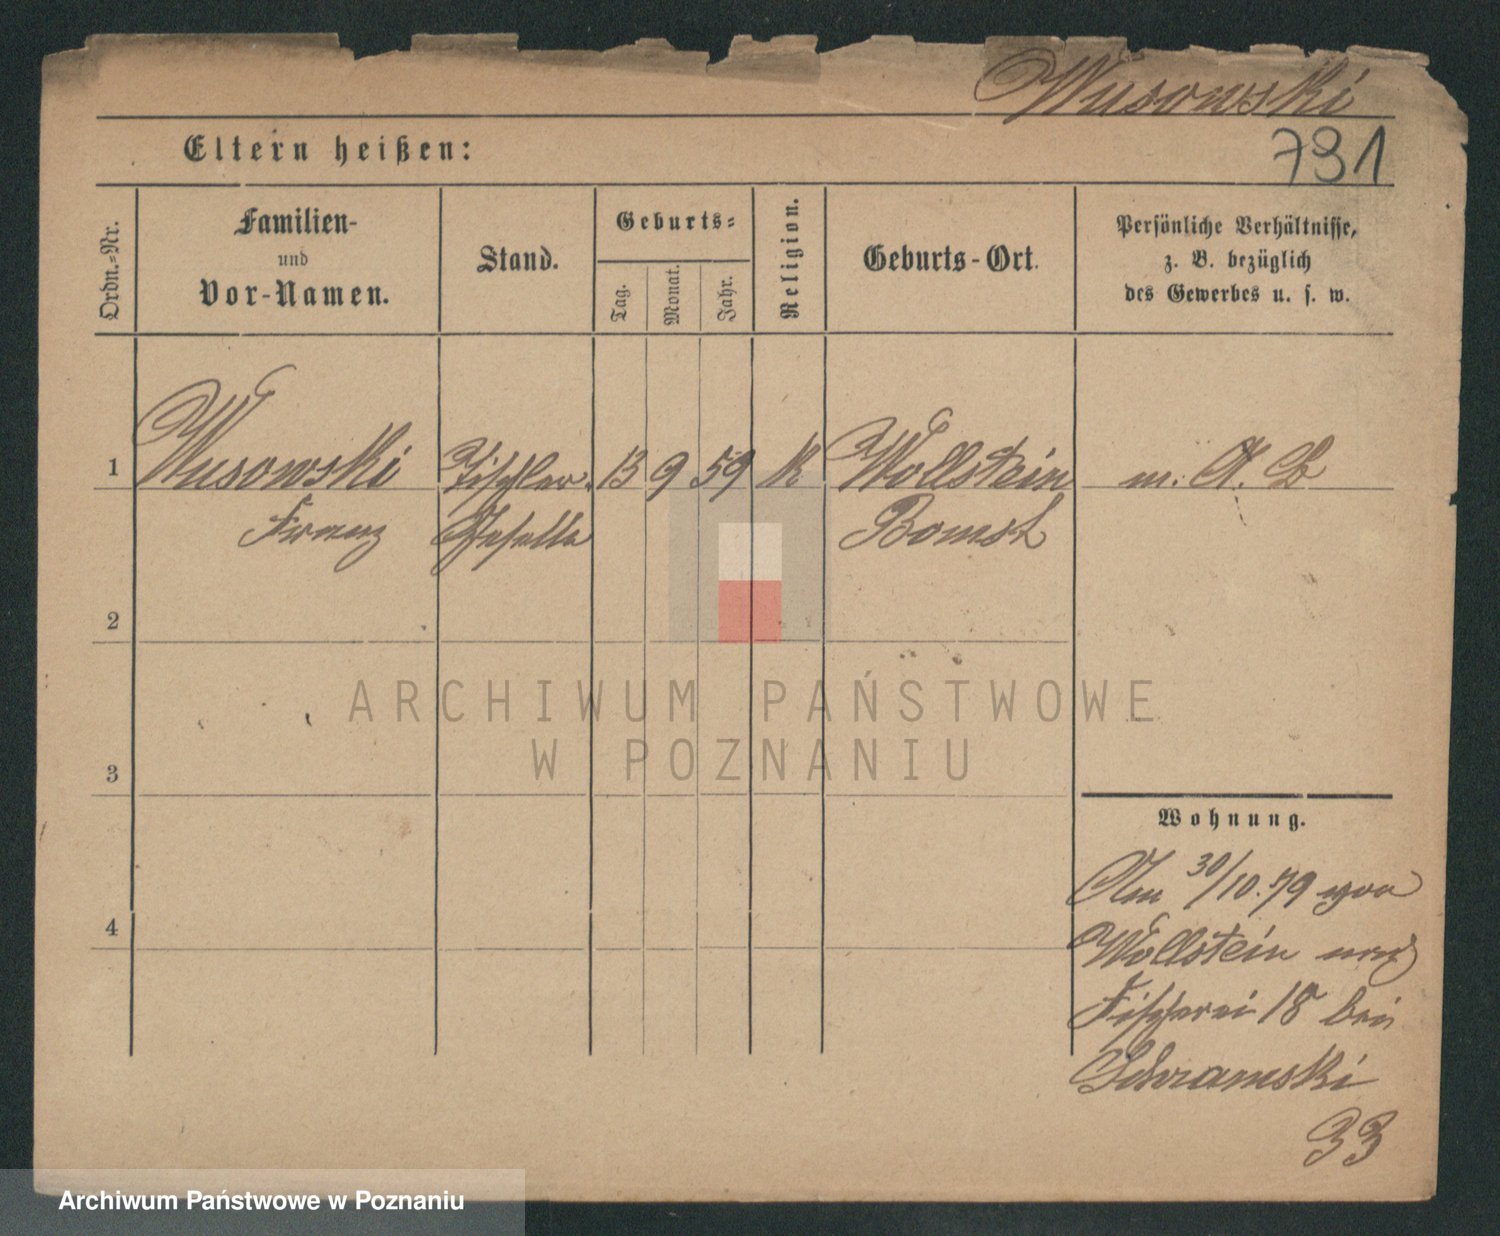 Wusowski
791
Eltern heißen:
Ordn.-Nr.
Familien-
und
Vor-Namen.
Stand.
Geburts-
Tag.
Monat.
Jahr.
Religion.
Geburts-Ort.
Persönliche Verhältnisse,
z. B. bezüglich
des Gewerbes u. s. w.
1 Wusowski Tischler 13 9 59 K Wollstein m. A. B
Franz Geselle Bomst
2
3
4
ARCHIWUM PAŃSTWOWE
W POZNANIU
Wohnung.
Am 30/10.79 von
Wollstein nach
Fischerei 18 bei
33
Archiwum Państwowe w Poznaniu